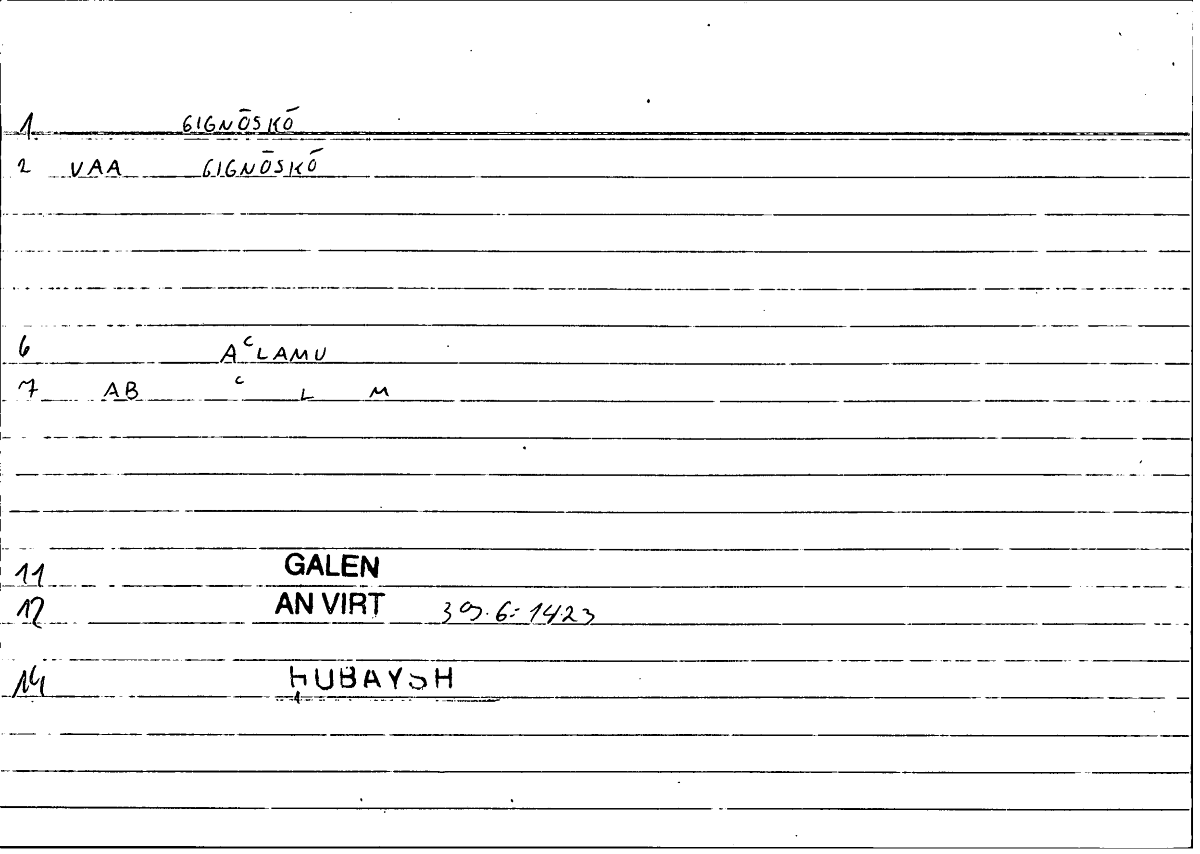 1 GIGNŌSKŌ
2 VAA GIGNŌSKŌ
6 AᶜLAMU
7 AB ᶜ L M
11 GALEN
12 AN VIRT 39.6: 1423
14 ḤUBAYSH